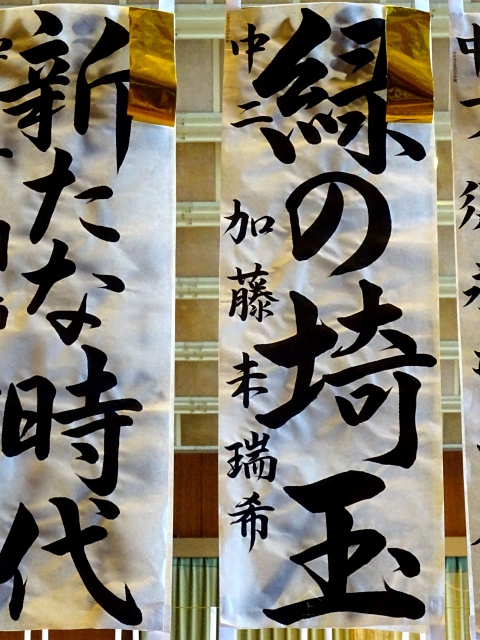 緑の埼玉
中二 加藤未瑞希
新たな時代